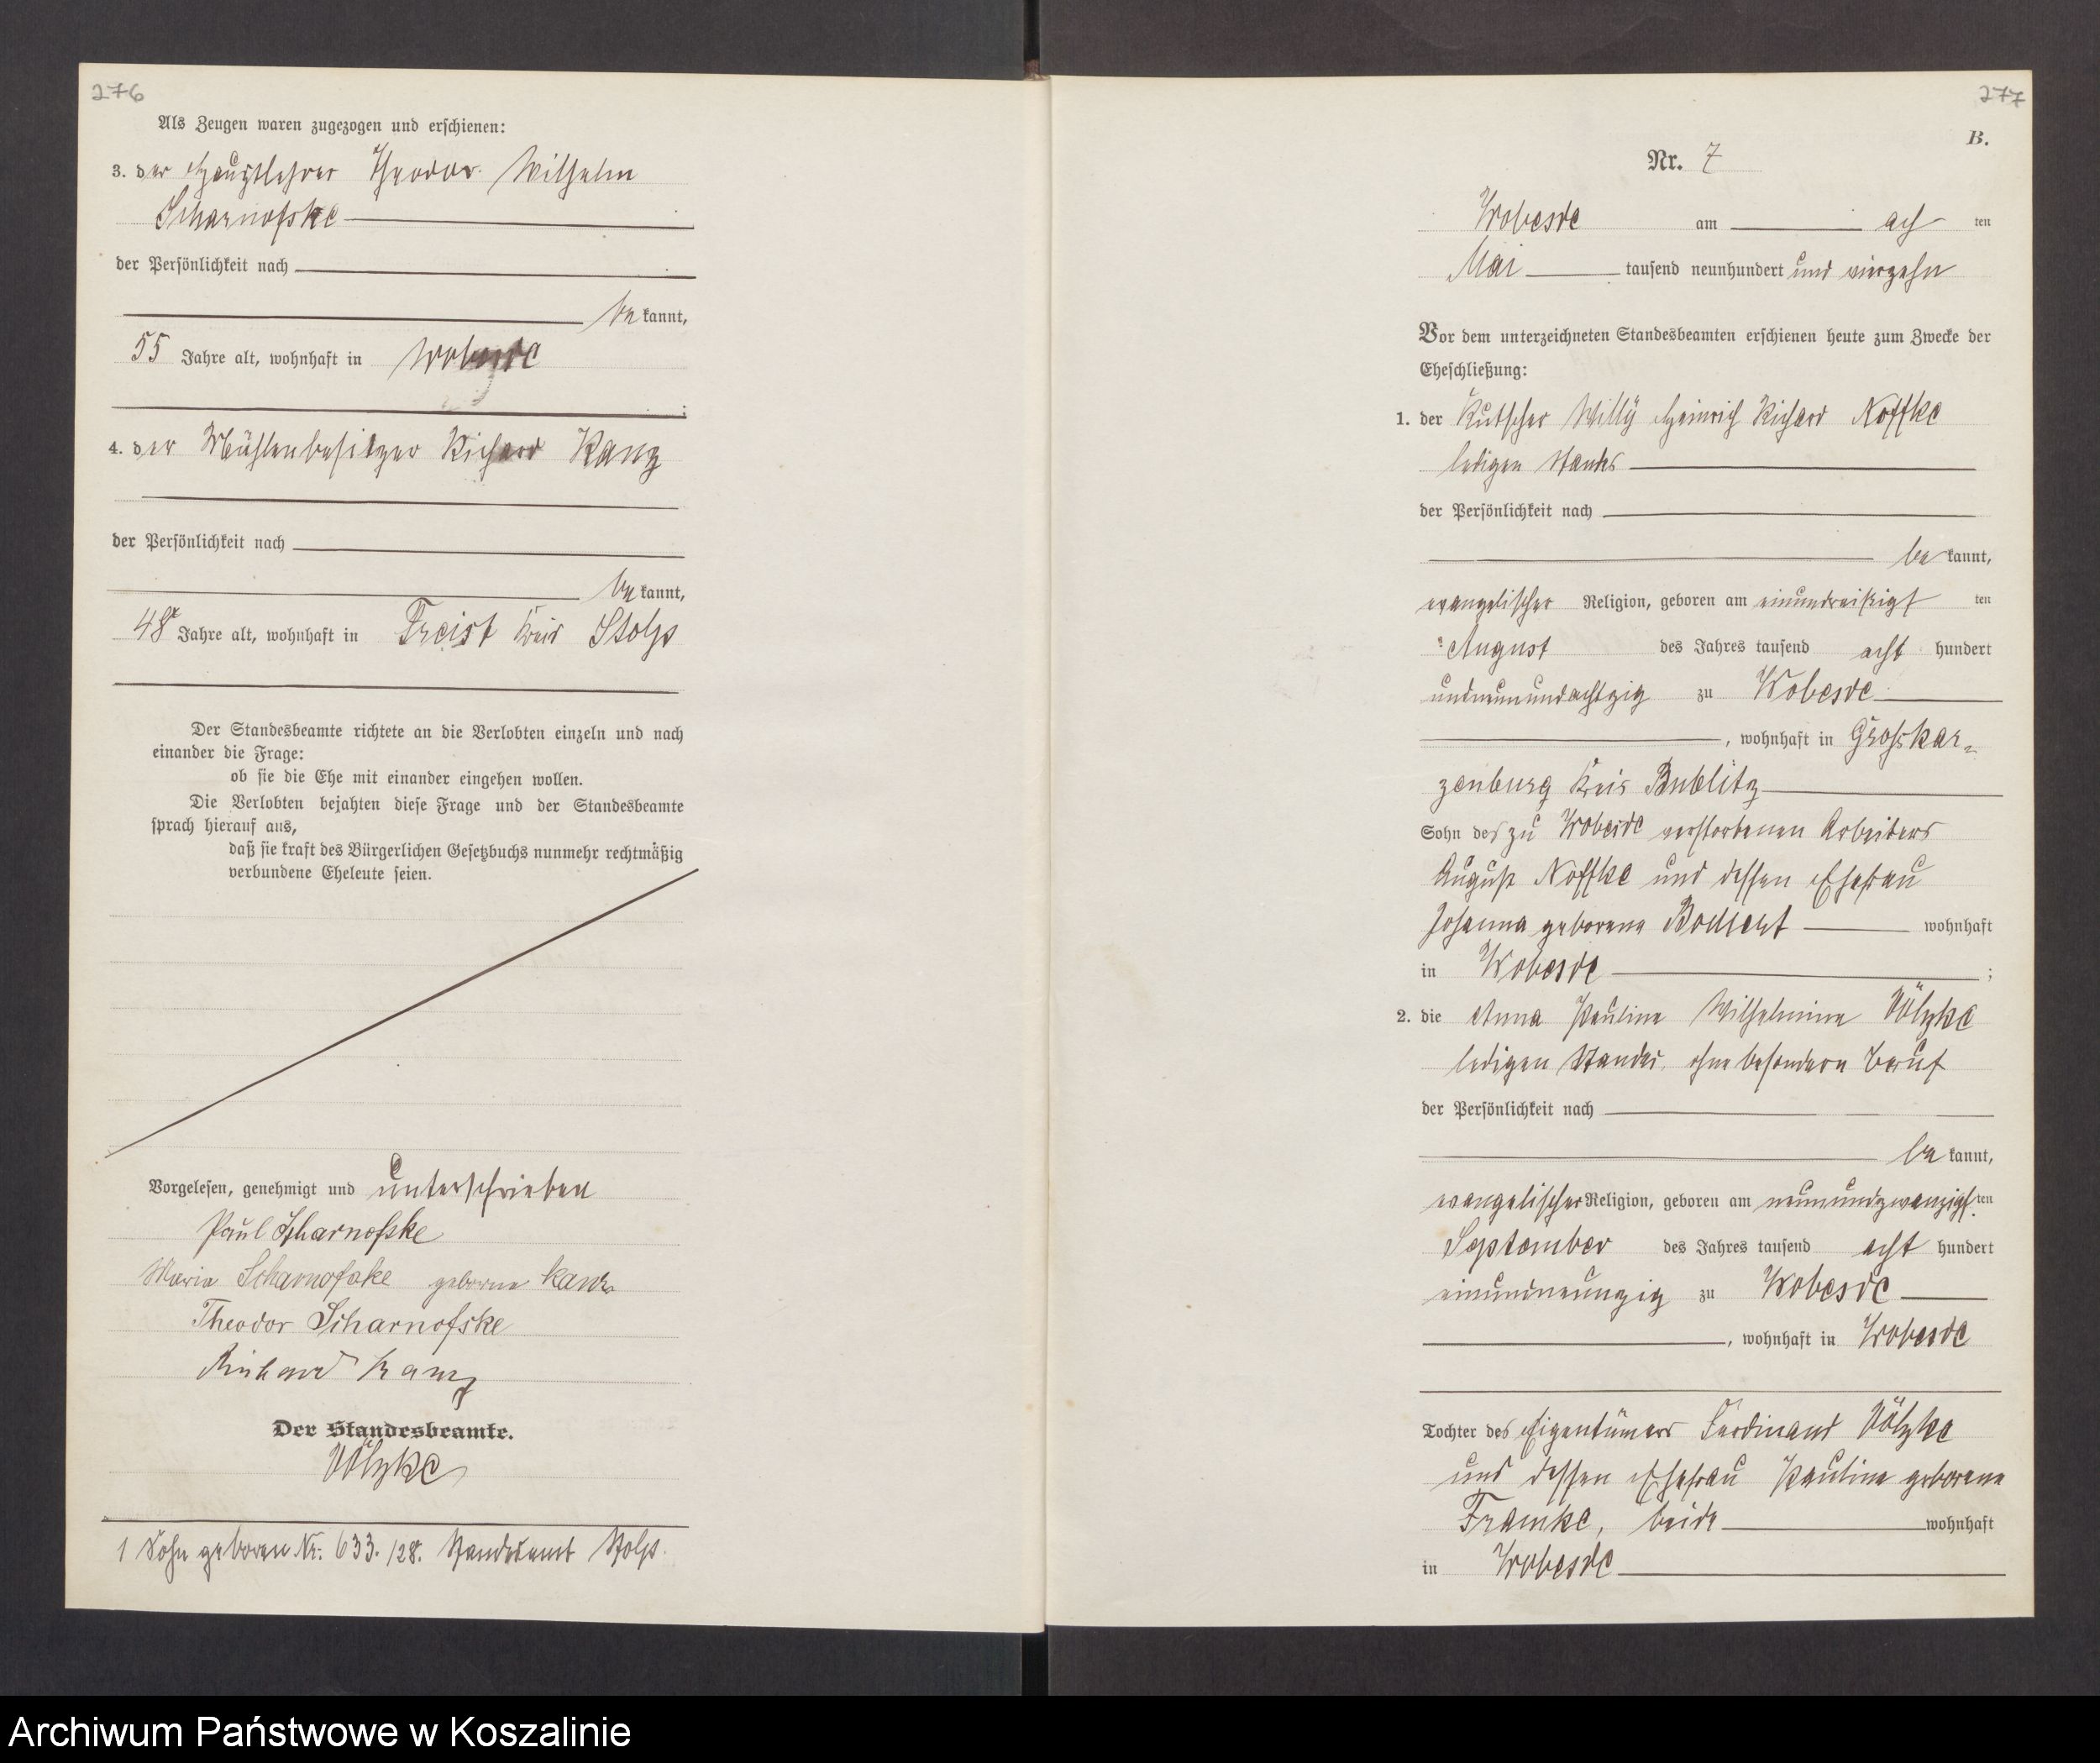 276
Als Zeugen waren zugezogen und erschienen:
3. der Hauptlehrer Theodor Wilhelm
Scharnofske
der Persönlichkeit nach
be kannt,
55 Jahre alt, wohnhaft in Wobesde
;
4. der Mühlenbesitzer Richard Kanz
der Persönlichkeit nach
be kannt,
48 Jahre alt, wohnhaft in Freist Kreis Stolp
Der Standesbeamte richtete an die Verlobten einzeln und nach
einander die Frage:
ob sie die Ehe mit einander eingehen wollen.
Die Verlobten bejahten diese Frage und der Standesbeamte
sprach hierauf aus,
daß sie kraft des Bürgerlichen Gesetzbuchs nunmehr rechtmäßig
verbundene Eheleute seien.
Vorgelesen, genehmigt und unterschrieben
Paul Scharnofske
Maria Scharnofske geborene Kanz
Theodor Scharnofske
Richard Kanz
Der Standesbeamte.
Völzke
1 Sohn geboren Nr: 633./28. Standesamt Stolp.
277
B.
Nr. 7
Wobesde am ach ten
Mai tausend neunhundert und vierzehn
Vor dem unterzeichneten Standesbeamten erschienen heute zum Zwecke der
Eheschließung:
1. der Kutscher Willy Heinrich Richard Noffke
ledigen Standes
der Persönlichkeit nach
be kannt,
evangelischer Religion, geboren am einunddreißigst ten
August des Jahres tausend acht hundert
undneunundachtzig zu Wobesde
, wohnhaft in Grosskar-
zenburg Kreis Bublitz
Sohn des zu Wobesde verstorbenen Arbeiters
August Noffke und dessen Ehefrau
Johanna geborene wohnhaft
in Wobesde ;
2. die Anna Pauline Wilhelmine Völzke
ledigen Standes, ohne besondern Beruf
der Persönlichkeit nach
be kannt,
evangelischer Religion, geboren am neunundzwanzigs ten
September des Jahres tausend acht hundert
einundneunzig zu Wobesde
, wohnhaft in Wobesde
Tochter des Eigentümers Ferdinand Völzke
und dessen Ehefrau Pauline geborene
Framke, beide wohnhaft
in Wobesde
Archiwum Państwowe w Koszalinie